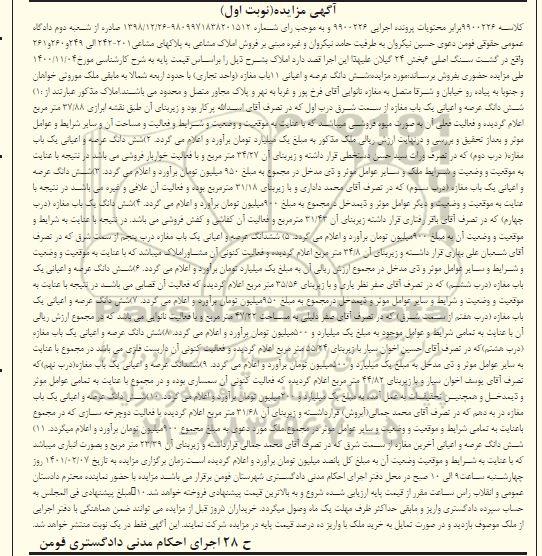 آگهی مزایده(نوبت اول)
کلاسه ۹۹۰۰۲۲۶برابر محتویات پرونده اجرایی ۹۹۰۰۲۲۶ و به موجب رای شماره ۹۸۰۹۹۷۱۸۳۸۲۰۱۵۱۲-۱۳۹۸/۱۲/۲۶ صادره از شعبه دوم دادگاه
عمومی حقوقی فومن دعوی حسین نیکروان به طرفیت حامد نیکروان و غیره مبنی بر فروش املاک مشاعی به پلاکهای مشاعی ۲۰۱-۲۴۲ الی ۲۴۹و۲۶۰و۲۶۱
واقع در گشت سنگ اصلی ۶بخش ۲۴ گیلان علیهذا این اجرا قصد دارد املاک بشرح ذیل را براساس قیمت پایه به شرح کارشناسی مورخ۱۴۰۰/۱۱/۰۴
طی مزایده حضوری بفروش برساند:مورد مزایده:شش دانگ عرصه و اعیانی ۱۱باب مغازه (واحد تجاری) با حدود اربعه شمالا به مابقی ملک موروثی خواهان
و جنوبا به پیاده رو خیابان و شرقا متصل به مغازه نانوایی آقای فرخ پور و غربا به نهر و پلاک مجاور متصل و محدود می باشند.املاک مذکور عبارتند از :۱)
شش دانگ عرصه و اعیانی یک باب مغازه از سمت شرق درب اول که در تصرف آقای اسدالله برکار بود و زیربنای آن طبق نقشه ابرازی ۳۷/۸۸ متر مربع
اعلام گردیده و فعالیت فعلی آن به صورت میوه فروشی میباشد که با عنایت به موقعیت و وضعیت و شرایط و فعالیت و مساحت آن و سایر شرایط و عوامل
موثر و بعداز تحقیق و بررسی و درنهایت ارزش ریالی ملک مذکور به مبلغ یک میلیارد تومان برآورد و اعلام می گردد. ۲)شش دانگ عرصه و اعیانی یک باب
مغازه( درب دوم) که در تصرف وراث سید حسن دستخطی قرار داشته و زیربنای آن ۳۴/۲۷ متر مربع و با فعالیت خواربار فروشی می باشد در نتیجه با عنایت
به موقعیت و وضعیت و شرایط ملک و سایر عوامل موثر و ذی مدخل در مجموع به مبلغ ۹۵۰ میلیون تومان برآورد و اعلام می گردد. ۳)شش دانگ عرصه
و اعیانی یک باب مغازه (درب سوم) که در تصرف آقای محمد داداری و با زیربنای ۳۱/۱۸ مترمربع بوده و فعالیت آن علافی و غیره می باشد در نتیجه با
عنایت به موقعیت و وضعیت و دیگر عوامل موثر و ذیمدخل درمجموع به مبلغ ۹۰۰میلیون تومان برآورد و اعلام می گردد. ۴)شش دانگ عرصه و اعیانی یک باب مغازه (درب
چهارم) که در تصرف آقای باقر رفتاری قرار داشته زیربنای آن ۳۱/۴۳ مترمربع و فعالیت آن کفاشی و کفش فروشی می باشد. در نتیجه با عنایت به شرایط و
موقعیت و وضعیت آن به مبلغ ۹۰۰میلیون تومان برآورد و اعلام می گردد. ۵) ششدانگ عرصه و اعیانی یک باب مغازه درب پنجم از سمت شرق که در تصرف
آقای شعبان علی بهاری قرار داشته و زیربنای آن ۳۴/۸ متر مربع اعلام گردیده و فعالیت کنونی آن مشاوراملاک میباشد که با عنایت به موقعیت وضعیت
و شرایط و سایر عوامل موثر و ذی مدخل در مجموع ارزش ریالی آن به مبلغ یک میلیارد تومان برآورد و اعلام می گردد. ۶)شش دانگ عرصه و اعیانی یک
باب مغازه (درب ششم) که در تصرف آقای صفر نظر یاری و با زیربنای ۳۵/۵۶ متر مربع اعلام گردیده که فعالیت آن قصابی می باشد در نتیجه با عنایت به
موقعیت و وضعیت و شرایط و سایر عوامل موثر و ذیمدخل درمجموع به مبلغ ۹۵۰میلیون تومان برآورد و اعلام می گردد. ۷)شش دانگ عرصه و اعیانی یک
باب مغازه (درب هفتم از سمت شرق) که در تصرف آقای صفر دلیلی به مساحت ۴۷/۲۲ متر مربع و با فعالیت نانوایی می باشد که در مجموع ارزش ریالی
آن با عنایت به تمامی شرایط و عوامل موجود به مبلغ یک میلیارد و ۵۰۰میلیون تومان برآورد و اعلام می گردد.۸)شش دانگ عرصه و اعیانی یک باب مغازه
(درب هشتم)که در تصرف آقای حسین اخوان سیار با زیربنای ۵۵/۲۴ متر مربع اعلام گردیده و فعالیت کنونی آن داربست فلزی می باشد در مجموع با عنایت
به سایر عوامل موثر و ذی مدخل به مبلغ یک میلیارد و ۵۰۰میلیون تومان برآورد و اعلام می گردد. ۹)ششدانگ عرصه و اعیانی یک باب مغازه(درب نهم)که
در تصرف آقای یوسف اخوان سیار و با زیربنای ۴۴/۸۲ متر مربع اعلام گردیده که فعالیت کنونی آن سمساری بوده و در مجموع با عنایت به تمامی عوامل موثر
و ذیمدخل و همچنین تحقیقات به عمل آمده به مبلغ یک میلیارد و ۲۰۰میلیون تومان برآورد و اعلام می گردد. ۱۰)شش دانگ عرصه و اعیانی یک باب
مغازه در به دهم که در تصرف آقای محمد جمالی(آبروش) قرارداشته و زیربنای آن ۳۱/۶۸ متر مربع اعلام گردیده با فعالیت دوچرخه سازی که در مجموع
باعنایت به تمامی شرایط و موقعیت و وضعیت و سایر عوامل موثر در مجموع ملک مورد بحث به مبلغ مجموع ۹۰۰میلیون تومان برآورد و اعلام میگردد. ۱۱)
شش دانگ عرصه و اعیانی آخرین مغازه از سمت شرق که در تصرف آقای محمد جمالی قرارداشته و زیربنای آن ۲۳/۳۹ متر مربع و بصورت انباری میباشد
که با عنایت به شرایط و موقعیت وضعیت آن به مبلغ کل پانصد میلیون تومان برآورد و اعلام گردیده است.زمان برگزاری مزایده به تاریخ ۱۴۰۱/۰۲/۰۷ روز
چهارشنبه ساعت۹ الی ۱۰ صبح در محل دفتر اجرای احکام مدنی دادگستری شهرستان فومن برقرار می باشد.مزایده با حضور نماینده محترم دادستان
عمومی و انقلاب راس ساعت مقرر از قیمت پایه ارزیابی شده شروع و به بالاترین قیمت پیشنهادی فروخته خواهد شد.۱۰٪مبلغ پیشنهادی فی المجلس به
حساب سپرده دادگستری واریز و مابقی حداکثر ظرف مهلت یک ماه وصول میگردد. خریداران ۵روز قبل از مزایده می توانند ضمن هماهنگی با دفتر اجرایی
از ملک موصوف بازدید و در صورت تمایل به خرید ملک با واریز ده درصد قیمت پایه در مزایده شرکت نمایند. این آگهی فقط در یک نوبت منتشر خواهد شد.
ح ۲۸ اجرای احکام مدنی دادگستری فومن